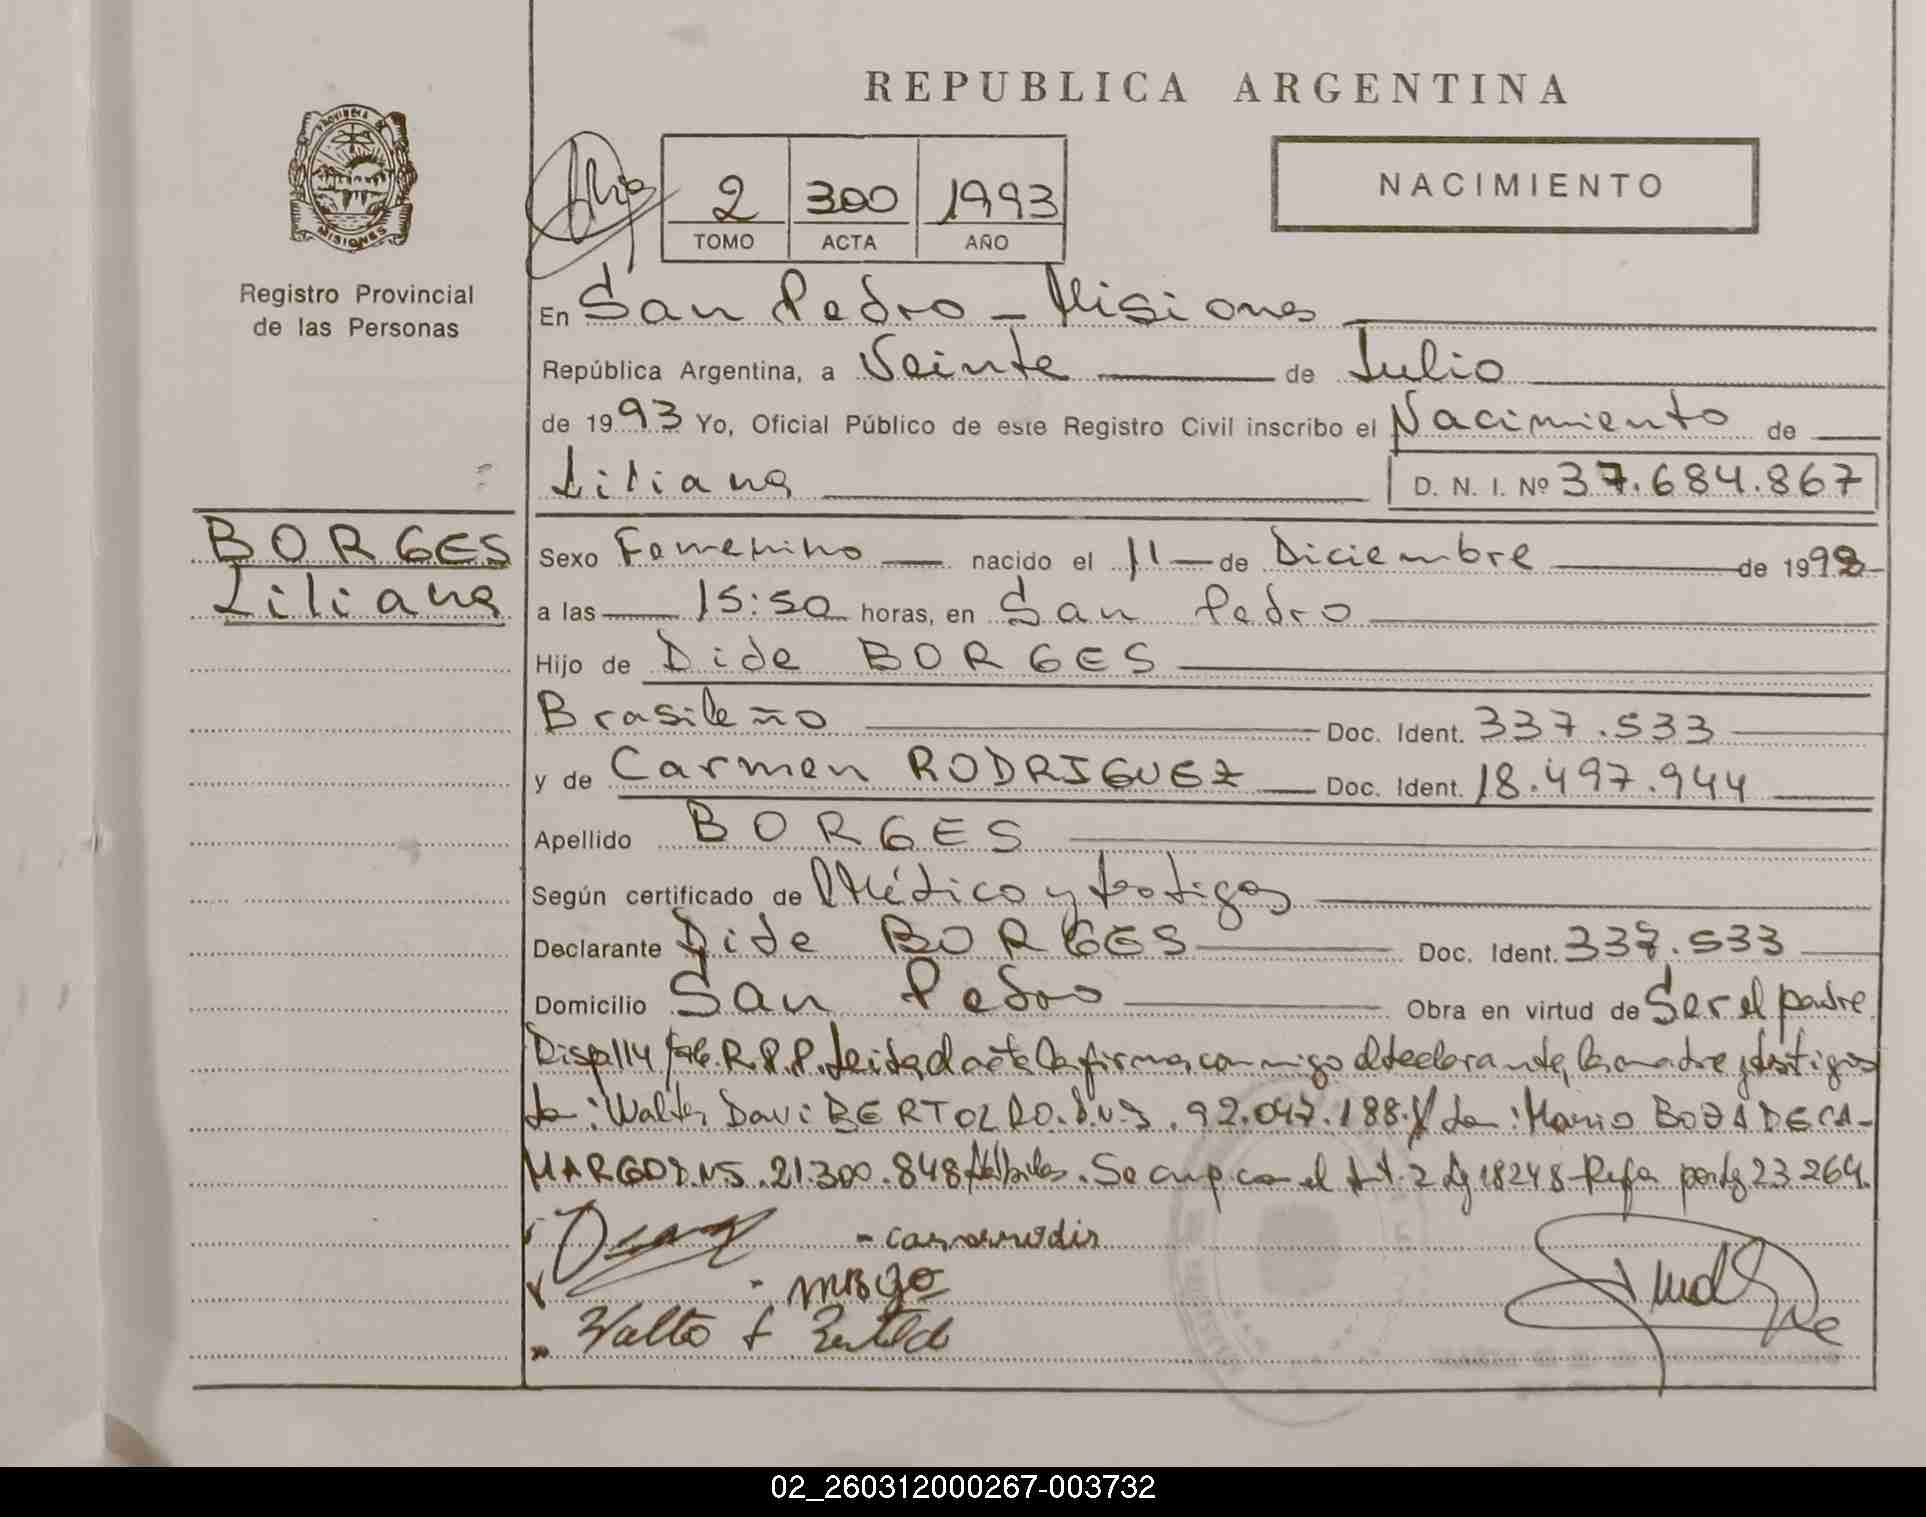 REPUBLICA ARGENTINA
PROVINCIA DE MISIONES
Registro Provincial
de las Personas
2 300 1993
TOMO ACTA AÑO
NACIMIENTO
En San Pedro - Misiones
República Argentina, a Veinte de Julio
de 1993 Yo, Oficial Público de este Registro Civil inscribo el Nacimiento de
Liliana D. N. I. Nº 37.684.867
BORGES
Liliana
Sexo Femenino nacido el 11 de Diciembre de 1992
a las 15:50 horas, en San Pedro
Hijo de Dide BORGES
Brasileño Doc. Ident. 337.533
y de Carmen RODRIGUEZ Doc. Ident. 18.497.944
Apellido BORGES
Según certificado de Médico y testigos
Declarante Dide BORGES Doc. Ident. 337.533
Domicilio San Pedro Obra en virtud de Ser el padre
Disp 114 R.P.P. Leida el acta la firma conmigo el declarante, la madre y testigos
Walter Davi BERTOLDO. D.N.I. 92.047.188. Y Mario BOJA DE CA-
MARGO D.N.I. 21.300.848 Se cup con el Art. 2 Ly 18248 por Ly 23.264.